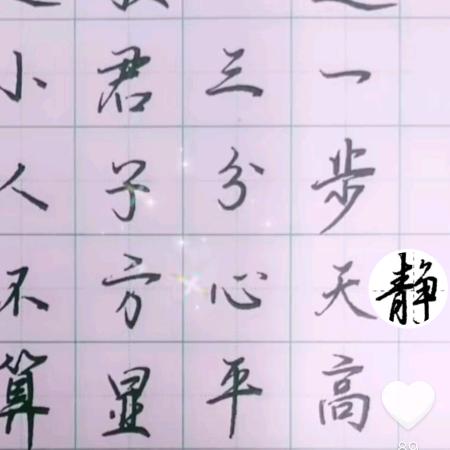 一步天高
三分心平
君子方显
小人不算
静
89